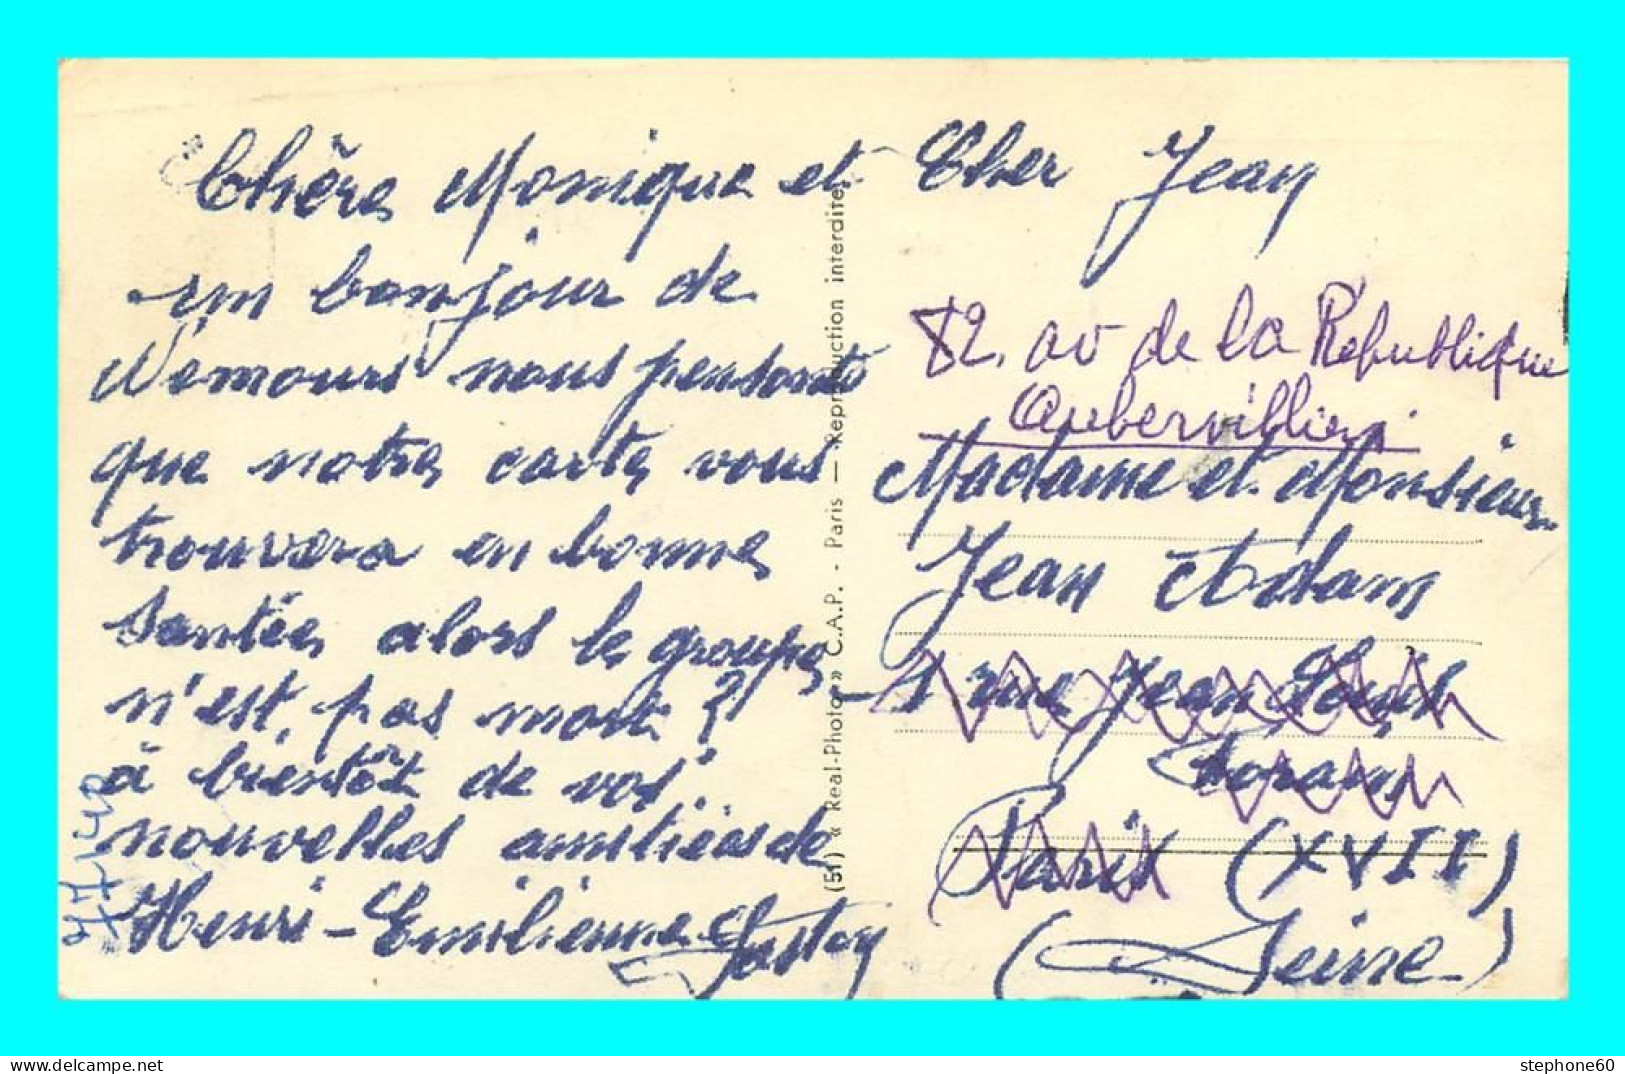 Chère Monique et Cher Jean
un bonjour de
Nemours nous pensons
que notre carte vous
trouvera en bonne
santée alors le groupe
n'est pas mort ?
à bientôt de vos
nouvelles amitiées de
Henri-Emilienne
(51) « Real-Photo » C.A.P. - Paris — Reproduction interdite
82. av de la République
Aubervilliers
Madame et Monsieur
Jean Adam
1 rue Jean Louis
Forain
Paris (XVII)
(Seine)
stephone60